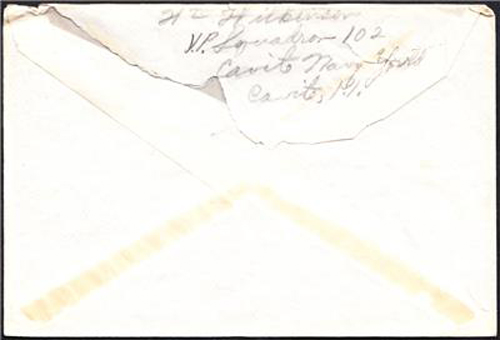 Wilkinson
V.P. Squadron 102
Cavite Navy Yard
Cavite, P.I.